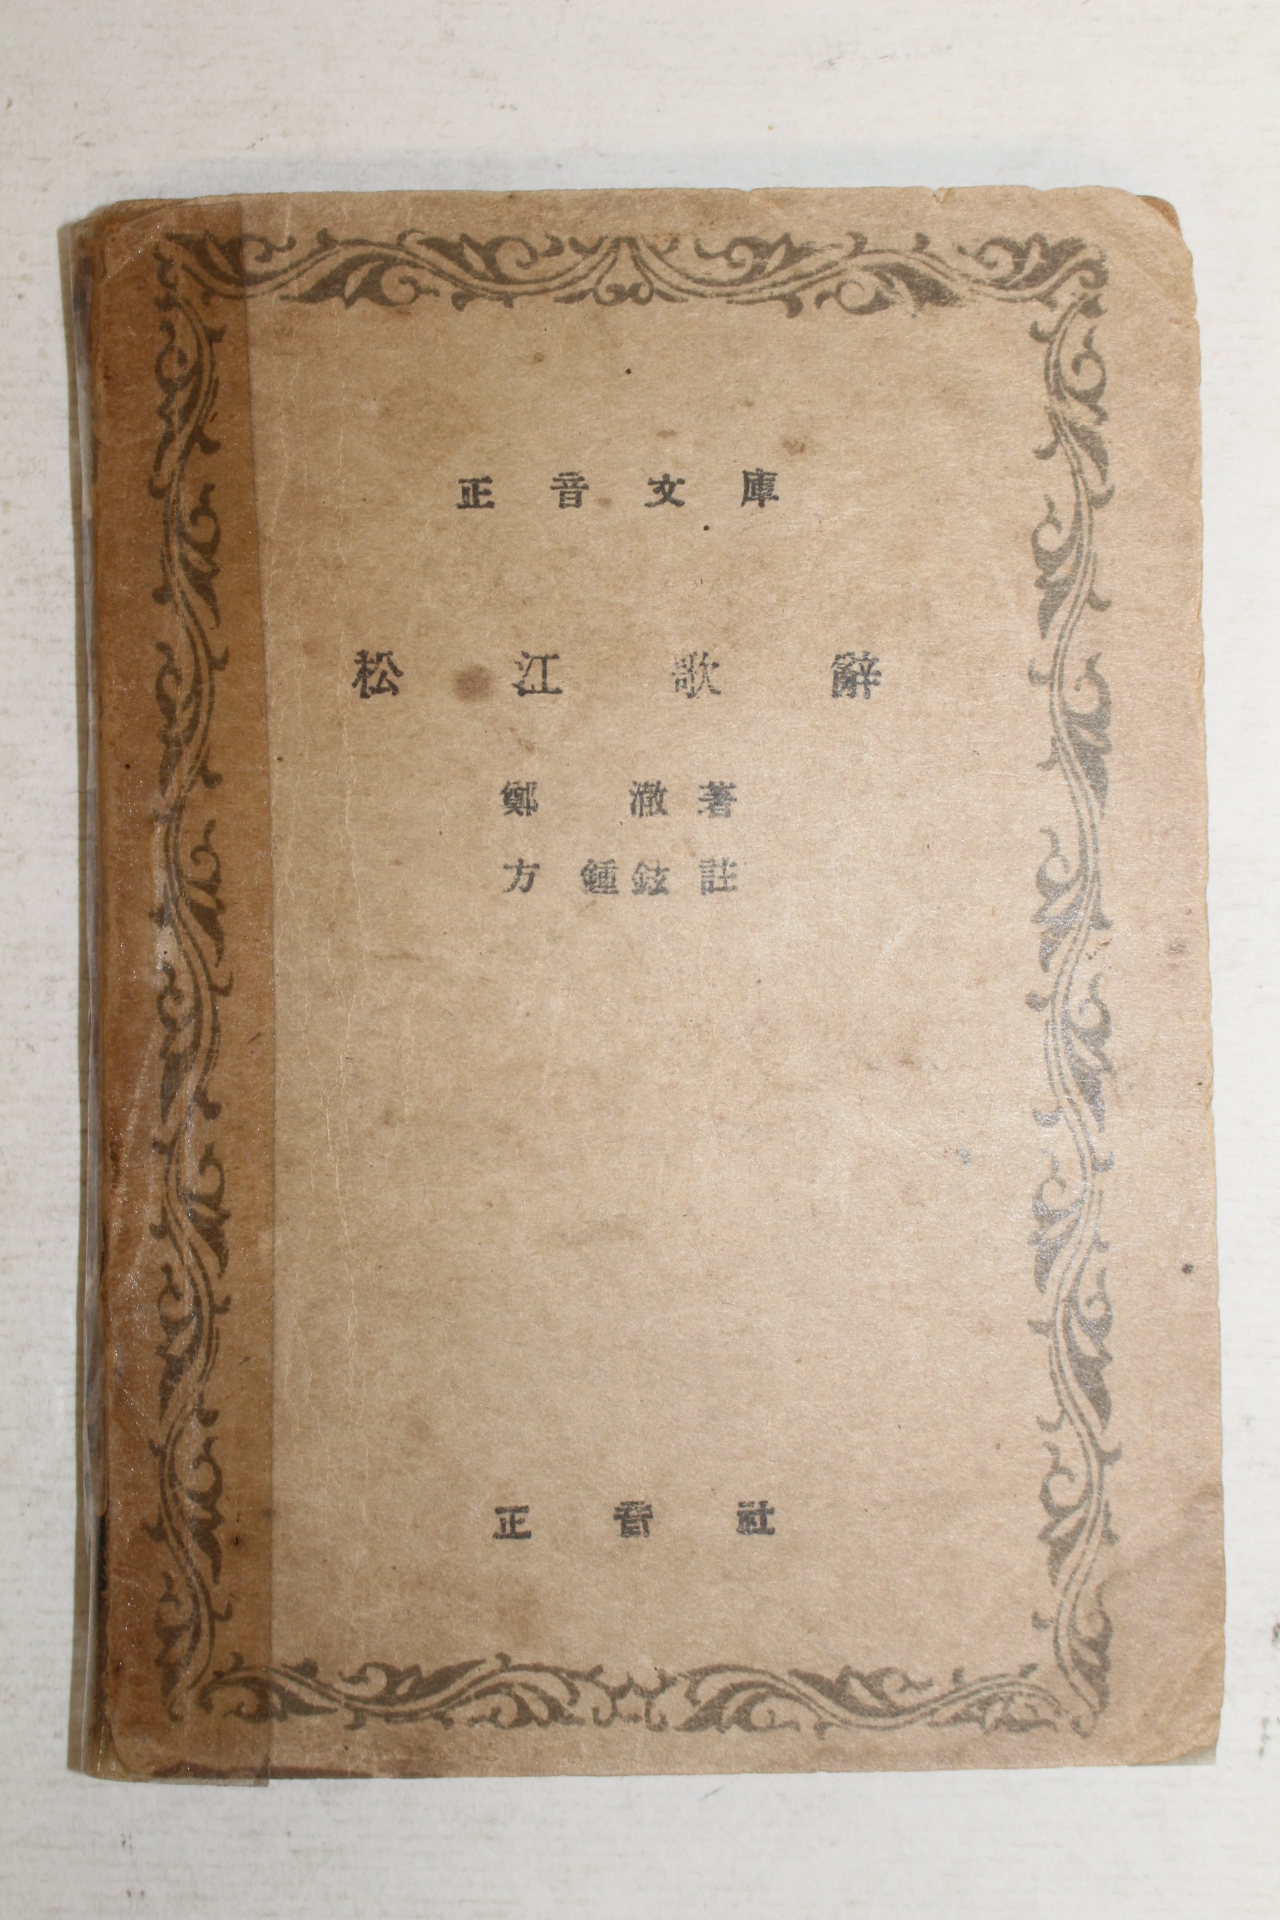 正音文庫
松江歌辭
鄭澈著
方鍾鉉註
正音社